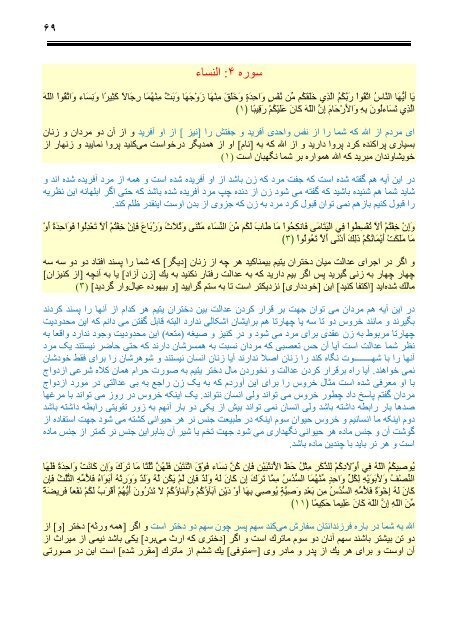 ۶۹
سوره ۴: النساء
يَا أَيُّهَا النَّاسُ اتَّقُواْ رَبَّكُمُ الَّذِي خَلَقَكُم مِّن نَّفْسٍ وَاحِدَةٍ وَخَلَقَ مِنْهَا زَوْجَهَا وَبَثَّ مِنْهُمَا رِجَالاً كَثِيرًا وَنِسَاء وَاتَّقُواْ اللّهَ
الَّذِي تَسَاءلُونَ بِهِ وَالأَرْحَامَ إِنَّ اللّهَ كَانَ عَلَيْكُمْ رَقِيبًا (۱)
ای مردم از الله که شما را از نفس واحدی آفرید و جفتش را [نیز] از او آفرید و از آن دو مردان و زنان
بسیاری پراکنده کرد پروا دارید و از الله که به [نام] او از همدیگر درخواست می‌کنید پروا نمایید و زنهار از
خویشاوندان مبرید که الله همواره بر شما نگهبان است (۱)
در این آیه هم گفته شده است که جفت مرد که زن باشد از او آفریده شده است و همه از مرد آفریده شده اند و
شاید شما هم شنیده باشید که گفته می شود زن از دنده چپ مرد آفریده شده باشد که حتی اگر ابلهانه این نظریه
را قبول کنیم بازهم نمی توان قبول کرد مرد به زن که جزوی از بدن اوست اینقدر ظلم کند.
وَإِنْ خِفْتُمْ أَلاَّ تُقْسِطُواْ فِي الْيَتَامَى فَانكِحُواْ مَا طَابَ لَكُم مِّنَ النِّسَاء مَثْنَى وَثُلاَثَ وَرُبَاعَ فَإِنْ خِفْتُمْ أَلاَّ تَعْدِلُواْ فَوَاحِدَةً أَوْ
مَا مَلَكَتْ أَيْمَانُكُمْ ذَلِكَ أَدْنَى أَلاَّ تَعُولُواْ (۳)
و اگر در اجرای عدالت میان دختران یتیم بیمناکید هر چه از زنان [دیگر] که شما را پسند افتاد دو دو سه سه
چهار چهار به زنی گیرید پس اگر بیم دارید که به عدالت رفتار نکنید به یک [زن آزاد] یا به آنچه [از کنیزان]
مالک شده‌اید [اکتفا کنید] این [خودداری] نزدیکتر است تا به ستم گرایید [و بیهوده عیال‌وار گردید] (۳)
در این آیه هم مردان می توان جهت بر قرار کردن عدالت بین دختران یتیم هر کدام از آنها را پسند کردند
بگیرند و مانند خروس دو تا سه یا چهارتا هم برایشان اشکالی ندارد البته قابل گفتن می دانم که این محدودیت
چهارتا مربوط به زن عقدی برای مرد می شود و در کنیز و صیغه (متعه) این محدودیت وجود ندارد واقعا به
نظر شما عدالت است آیا آن حس تعصبی که مردان نسبت به همسرشان دارند که حتی حاضر نیستند یک مرد
آنها را با شهـــوت نگاه کند را زنان اصلا ندارند آیا زنان انسان نیستند و شوهرشان را برای فقط خودشان
نمی خواهند. آیا راه برقرار کردن عدالت و نخوردن مال دختر یتیم به صورت حرام همان کلاه شرعی ازدواج
با او معرفی شده است مثال خروس را برای این آوردم که به یک زن راجع به بی عدالتی در مورد ازدواج
مردان گفتم پاسخ داد چطور خروس می تواند ولی انسان نتواند. یک اینکه خروس در روز می تواند با مرغها
صدها بار رابطه داشته باشد ولی انسان نمی تواند بیش از یکی دو بار آنهم به زور تقویتی رابطه داشته باشد
دوم اینکه ما انسانیم و خروس حیوان سوم اینکه در طبیعت جنس نر هر حیوانی کشته می شود جهت استفاده از
گوشت آن و جنس ماده هر حیوانی نگهداری می شود جهت تخم یا شیر آن بنابراین جنس نر کمتر از جنس ماده
است و هر نر باید با چندین ماده باشد.
يُوصِيكُمُ اللّهُ فِي أَوْلاَدِكُمْ لِلذَّكَرِ مِثْلُ حَظِّ الأُنثَيَيْنِ فَإِن كُنَّ نِسَاء فَوْقَ اثْنَتَيْنِ فَلَهُنَّ ثُلُثَا مَا تَرَكَ وَإِن كَانَتْ وَاحِدَةً فَلَهَا
النِّصْفُ وَلأَبَوَيْهِ لِكُلِّ وَاحِدٍ مِّنْهُمَا السُّدُسُ مِمَّا تَرَكَ إِن كَانَ لَهُ وَلَدٌ فَإِن لَّمْ يَكُن لَّهُ وَلَدٌ وَوَرِثَهُ أَبَوَاهُ فَلأُمِّهِ الثُّلُثُ فَإِن
كَانَ لَهُ إِخْوَةٌ فَلأُمِّهِ السُّدُسُ مِن بَعْدِ وَصِيَّةٍ يُوصِي بِهَا أَوْ دَيْنٍ آبَآؤُكُمْ وَأَبناؤُكُمْ لاَ تَدْرُونَ أَيُّهُمْ أَقْرَبُ لَكُمْ نَفْعاً فَرِيضَةً
مِّنَ اللّهِ إِنَّ اللّهَ كَانَ عَلِيما حَكِيمًا (۱۱)
الله به شما در باره فرزندانتان سفارش می‌کند سهم پسر چون سهم دو دختر است و اگر [همه ورثه] دختر [و] از
دو تن بیشتر باشند سهم آنان دو سوم ماترک است و اگر [دختری که ارث می‌برد] یکی باشد نیمی از میراث از
آن اوست و برای هر یک از پدر و مادر وی [=متوفی] یک ششم از ماترک [مقرر شده] است این در صورتی